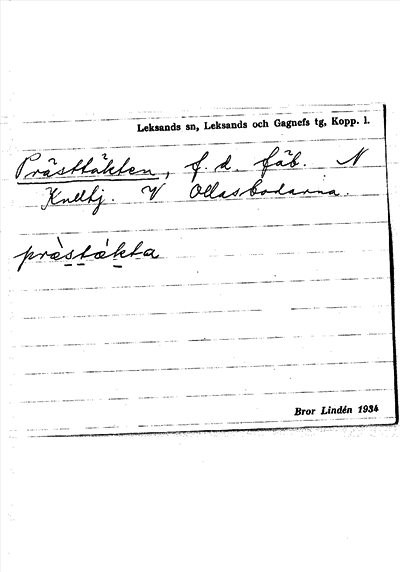 Leksands sn, Leksands och Gagnefs tg, Kopp. l.
Prästtäkten, f. d. fäb. N
Knettj. V Ollasbodarna.
pràstǽkta
Bror Lindén 1934